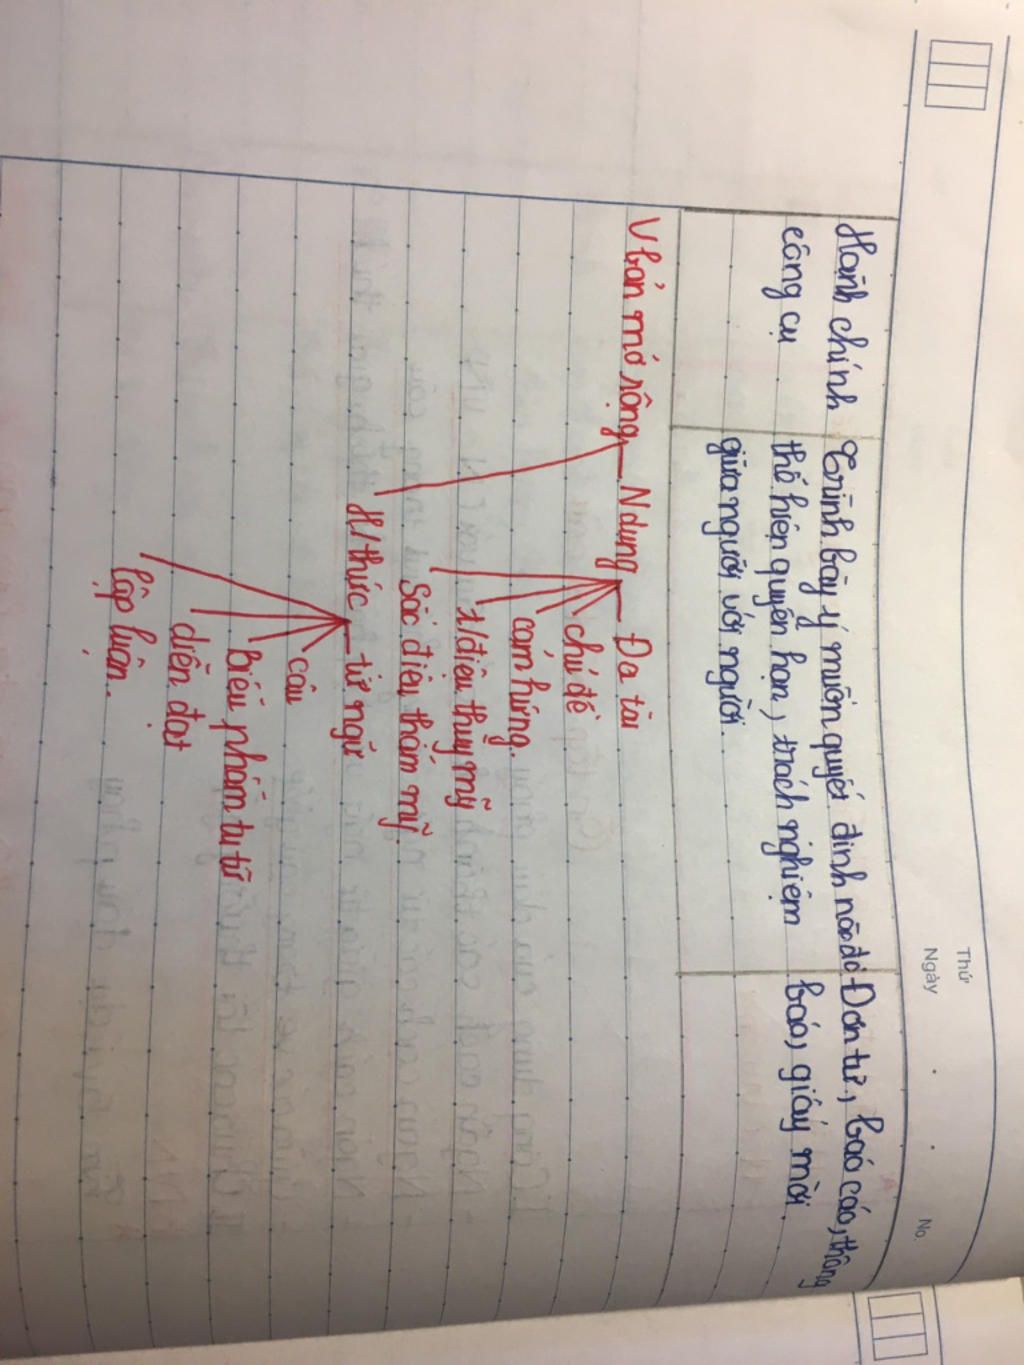 Thứ
Ngày . . No.
Hành chính Trình bày ý muốn quyết định nào đó Đơn từ, báo cáo, thông
công cụ thể hiện quyền hạn, trách nghiệm báo, giấy mời
giữa người với người.
Vbản mở rộng Ndung Đa tài
chủ đề
cảm hứng.
t/điệu thuỷ mỹ
Sắc điệu thẩm mỹ.
H/thức từ ngữ
câu
Biểu phẩm tu từ
diễn đạt
lập luận..